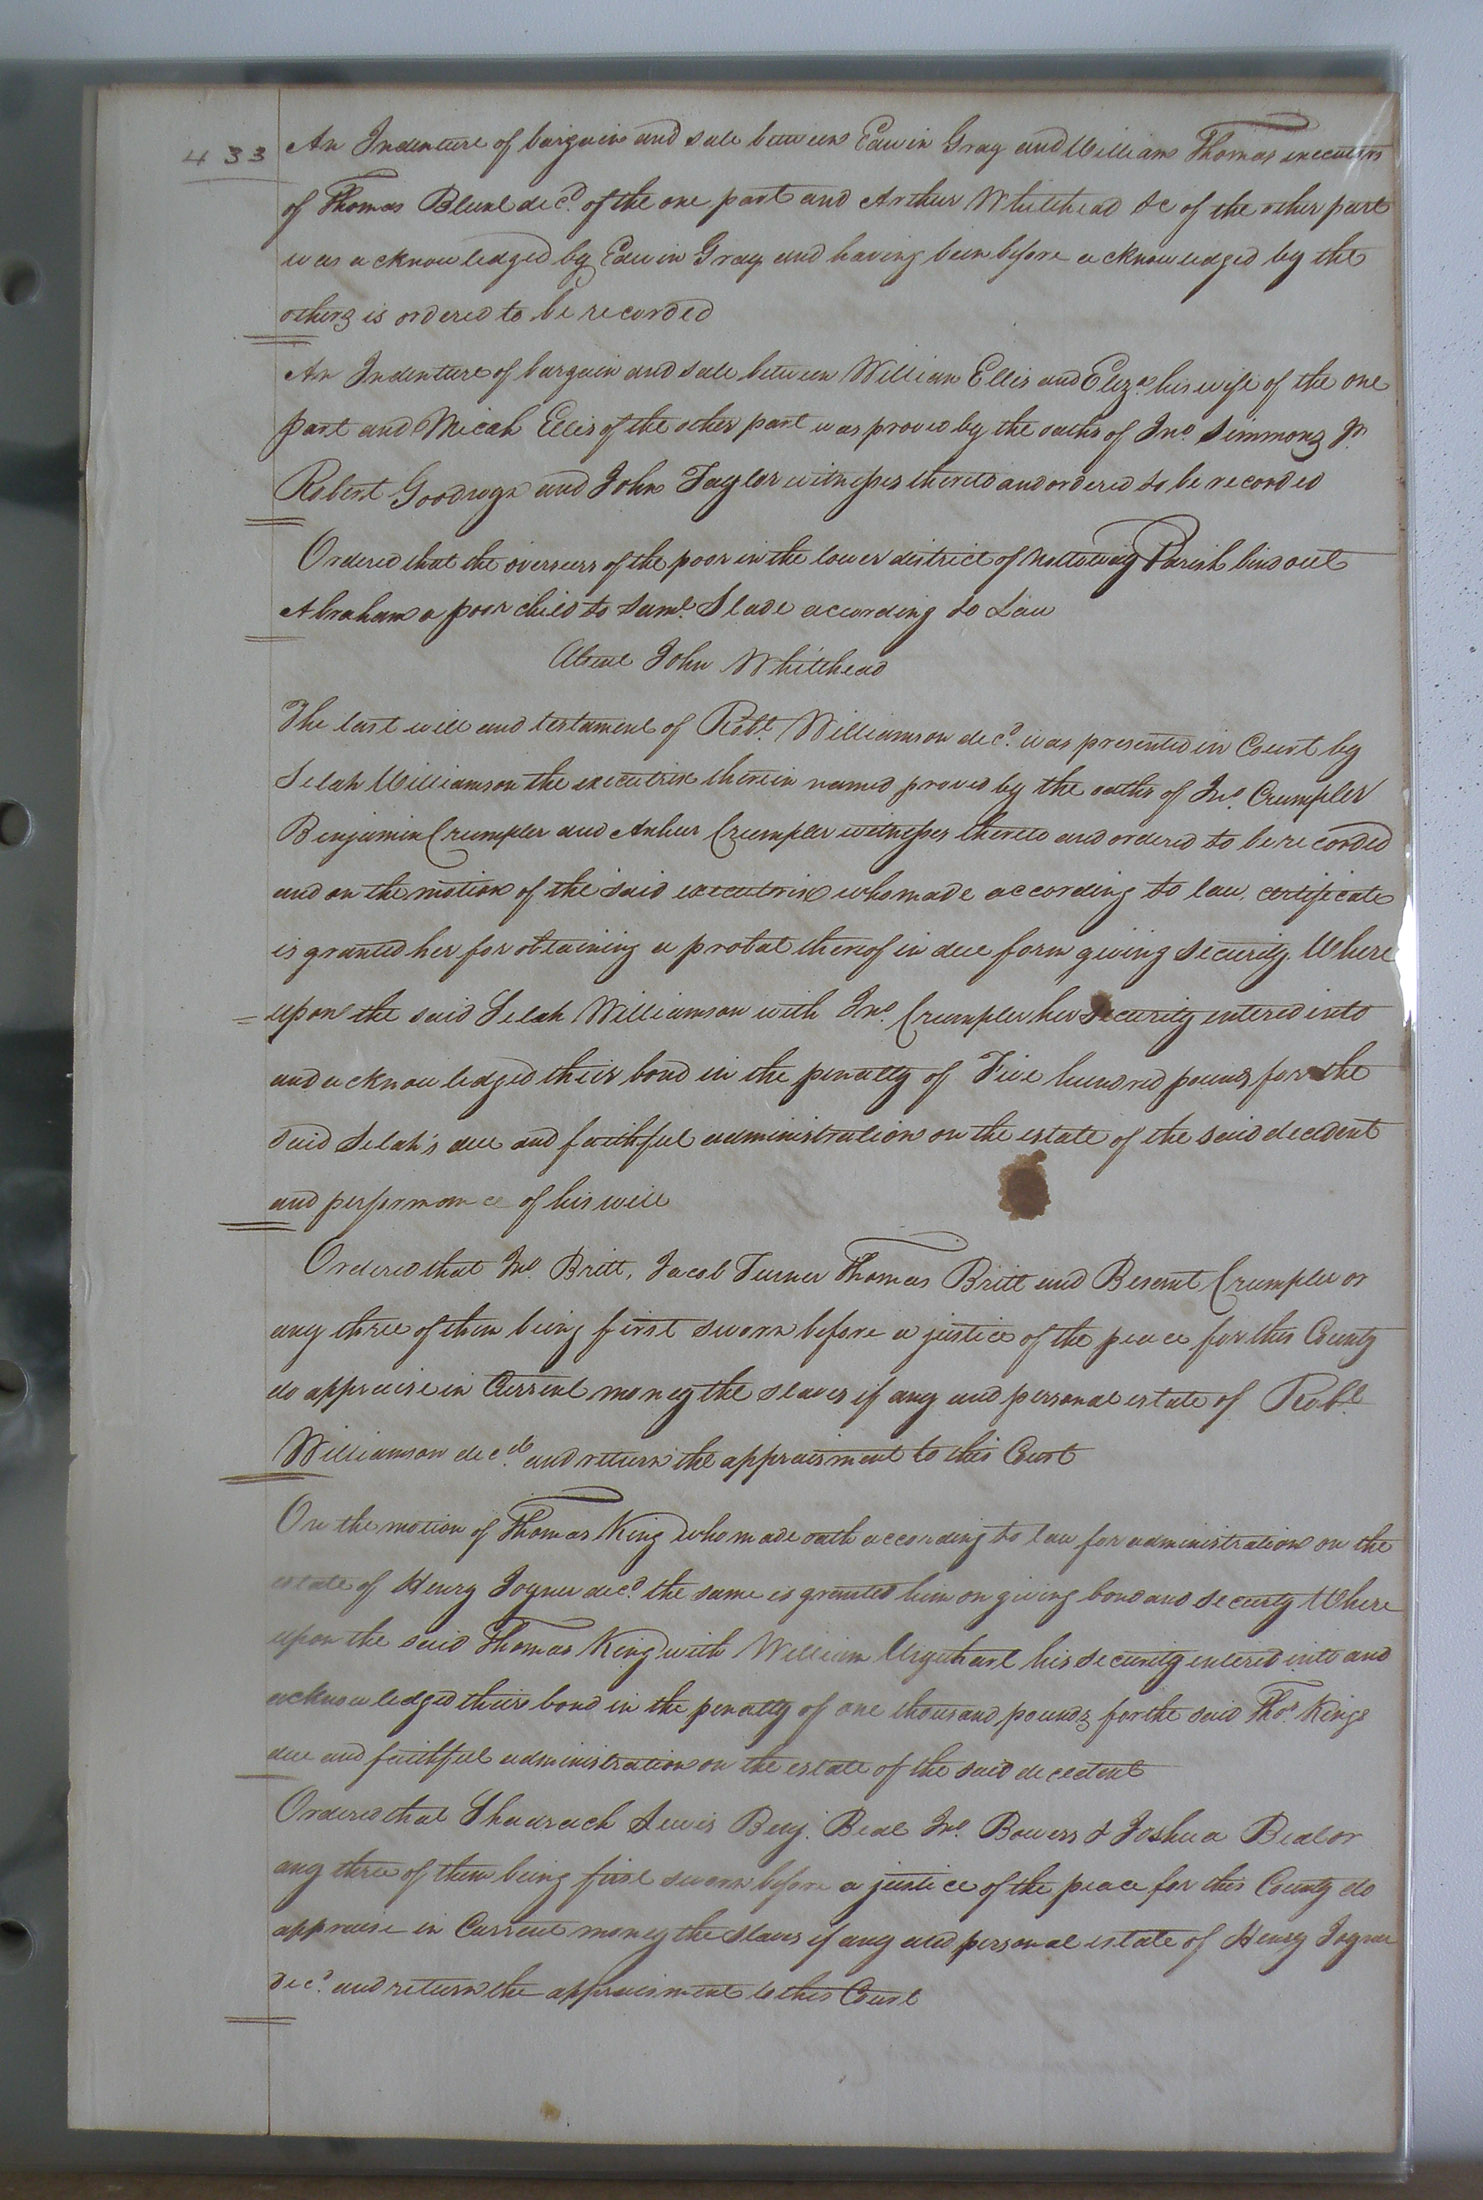 433
An Indenture of bargain and sale between Edwin Gray and William Thomas executors
of Thomas Blunt decd. of the one part and Arthur Whitehead &c of the other part
was acknowledged by Edwin Gray and having been before acknowledged by the
others is ordered to be recorded
An Indenture of bargain and sale between William Ellis and Eliza. his wife of the one
part and Micah Ellis of the other part was proved by the oaths of Jno. Simmons Jr.
Robert Goodwyn and John Taylor witnesses thereto and ordered to be recorded
Ordered that the overseers of the poor in the lower district of Nottoway Parish bind out
Abraham a poor child to Saml. Slade according to Law
Absent John Whitehead
The last will and testament of Robt. Williamson decd. was presented in Court by
Selah Williamson the executrix therein named proved by the oaths of Jno. Crumpler
Benjamin Crumpler and Arthur Crumpler witnesses thereto and ordered to be recorded
and on the motion of the said executrix who made according to law, certificate
is granted her for obtaining a probat thereof in due form giving security. Where
upon the said Selah Williamson with Jno. Crumpler her security entered into
and acknowledged their bond in the penalty of Five hundred pounds for the
said Selah's due and faithful administration on the estate of the said decedent
and performance of his will
Ordered that Jno. Britt, Jacob Turner Thomas Britt and Crumpler or
any three of them being first sworn before a justice of the peace for this County
do appraise in Current money the slaves if any and personal estate of Robt.
Williamson decd. and return the appraisment to this Court
On the motion of Thomas King who made oath according to law for administration on the
estate of Henry Joyner decd. the same is granted him on giving bond and security Where
upon the said Thomas King with William Urquhart his security entered into and
acknowledged their bond in the penalty of one thousand pounds for the said Thos. Kings
due and faithful administration on the estate of the said decedent
Ordered that Shadrach Lewis Benj. Beal Jno. Bowers & Joshua Beal or
any three of them being first sworn before a justice of the peace for this County do
appraise in Current money the slaves if any and personal estate of Henry Joyner
decd. and return the appraisment to this Court